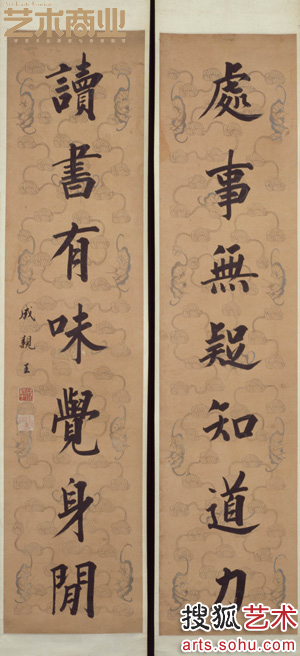 處事無疑知道力
讀書有味覺身閒
成親王
艺术商业
搜狐艺术
arts.sohu.com